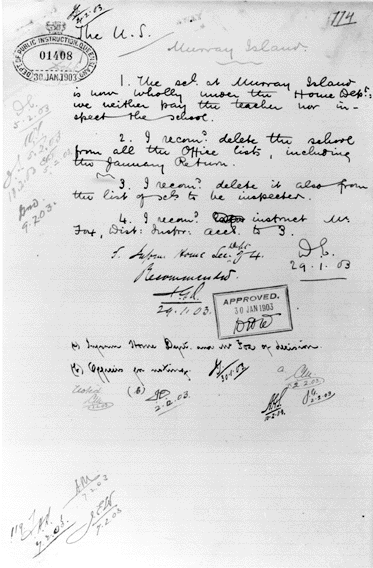 31.1.03
The U.S.
114
Murray Island.
DEPT. OF PUBLIC INSTRUCTION, QUEENSLAND
01408
30 JAN. 1903
1. The scl. at Murray Island
is now wholly under the Home Dept:
we neither pay the teacher nor in-
spect the school.
2. I recomd. delete the school
from all the Office lists, including
the January Return.
3. I recomd. delete it also from
the list of scls to be inspected.
4. I recomd. instruct Mr
Fox, Dist: Instor: accg. to 3.
5. Inform Home Sec. Dept. of 4.
D.E.
29.1.03
Recommended
29.1.03.
APPROVED.
30 JAN 1903
Inform Home Dept. and Mr Fox of decision
30.1.03
D.E.
5.2.03
5.2.03
9.2.03.
2.2.03.
2.2.03
119
7.2.03
7.2.03.
9.2.03